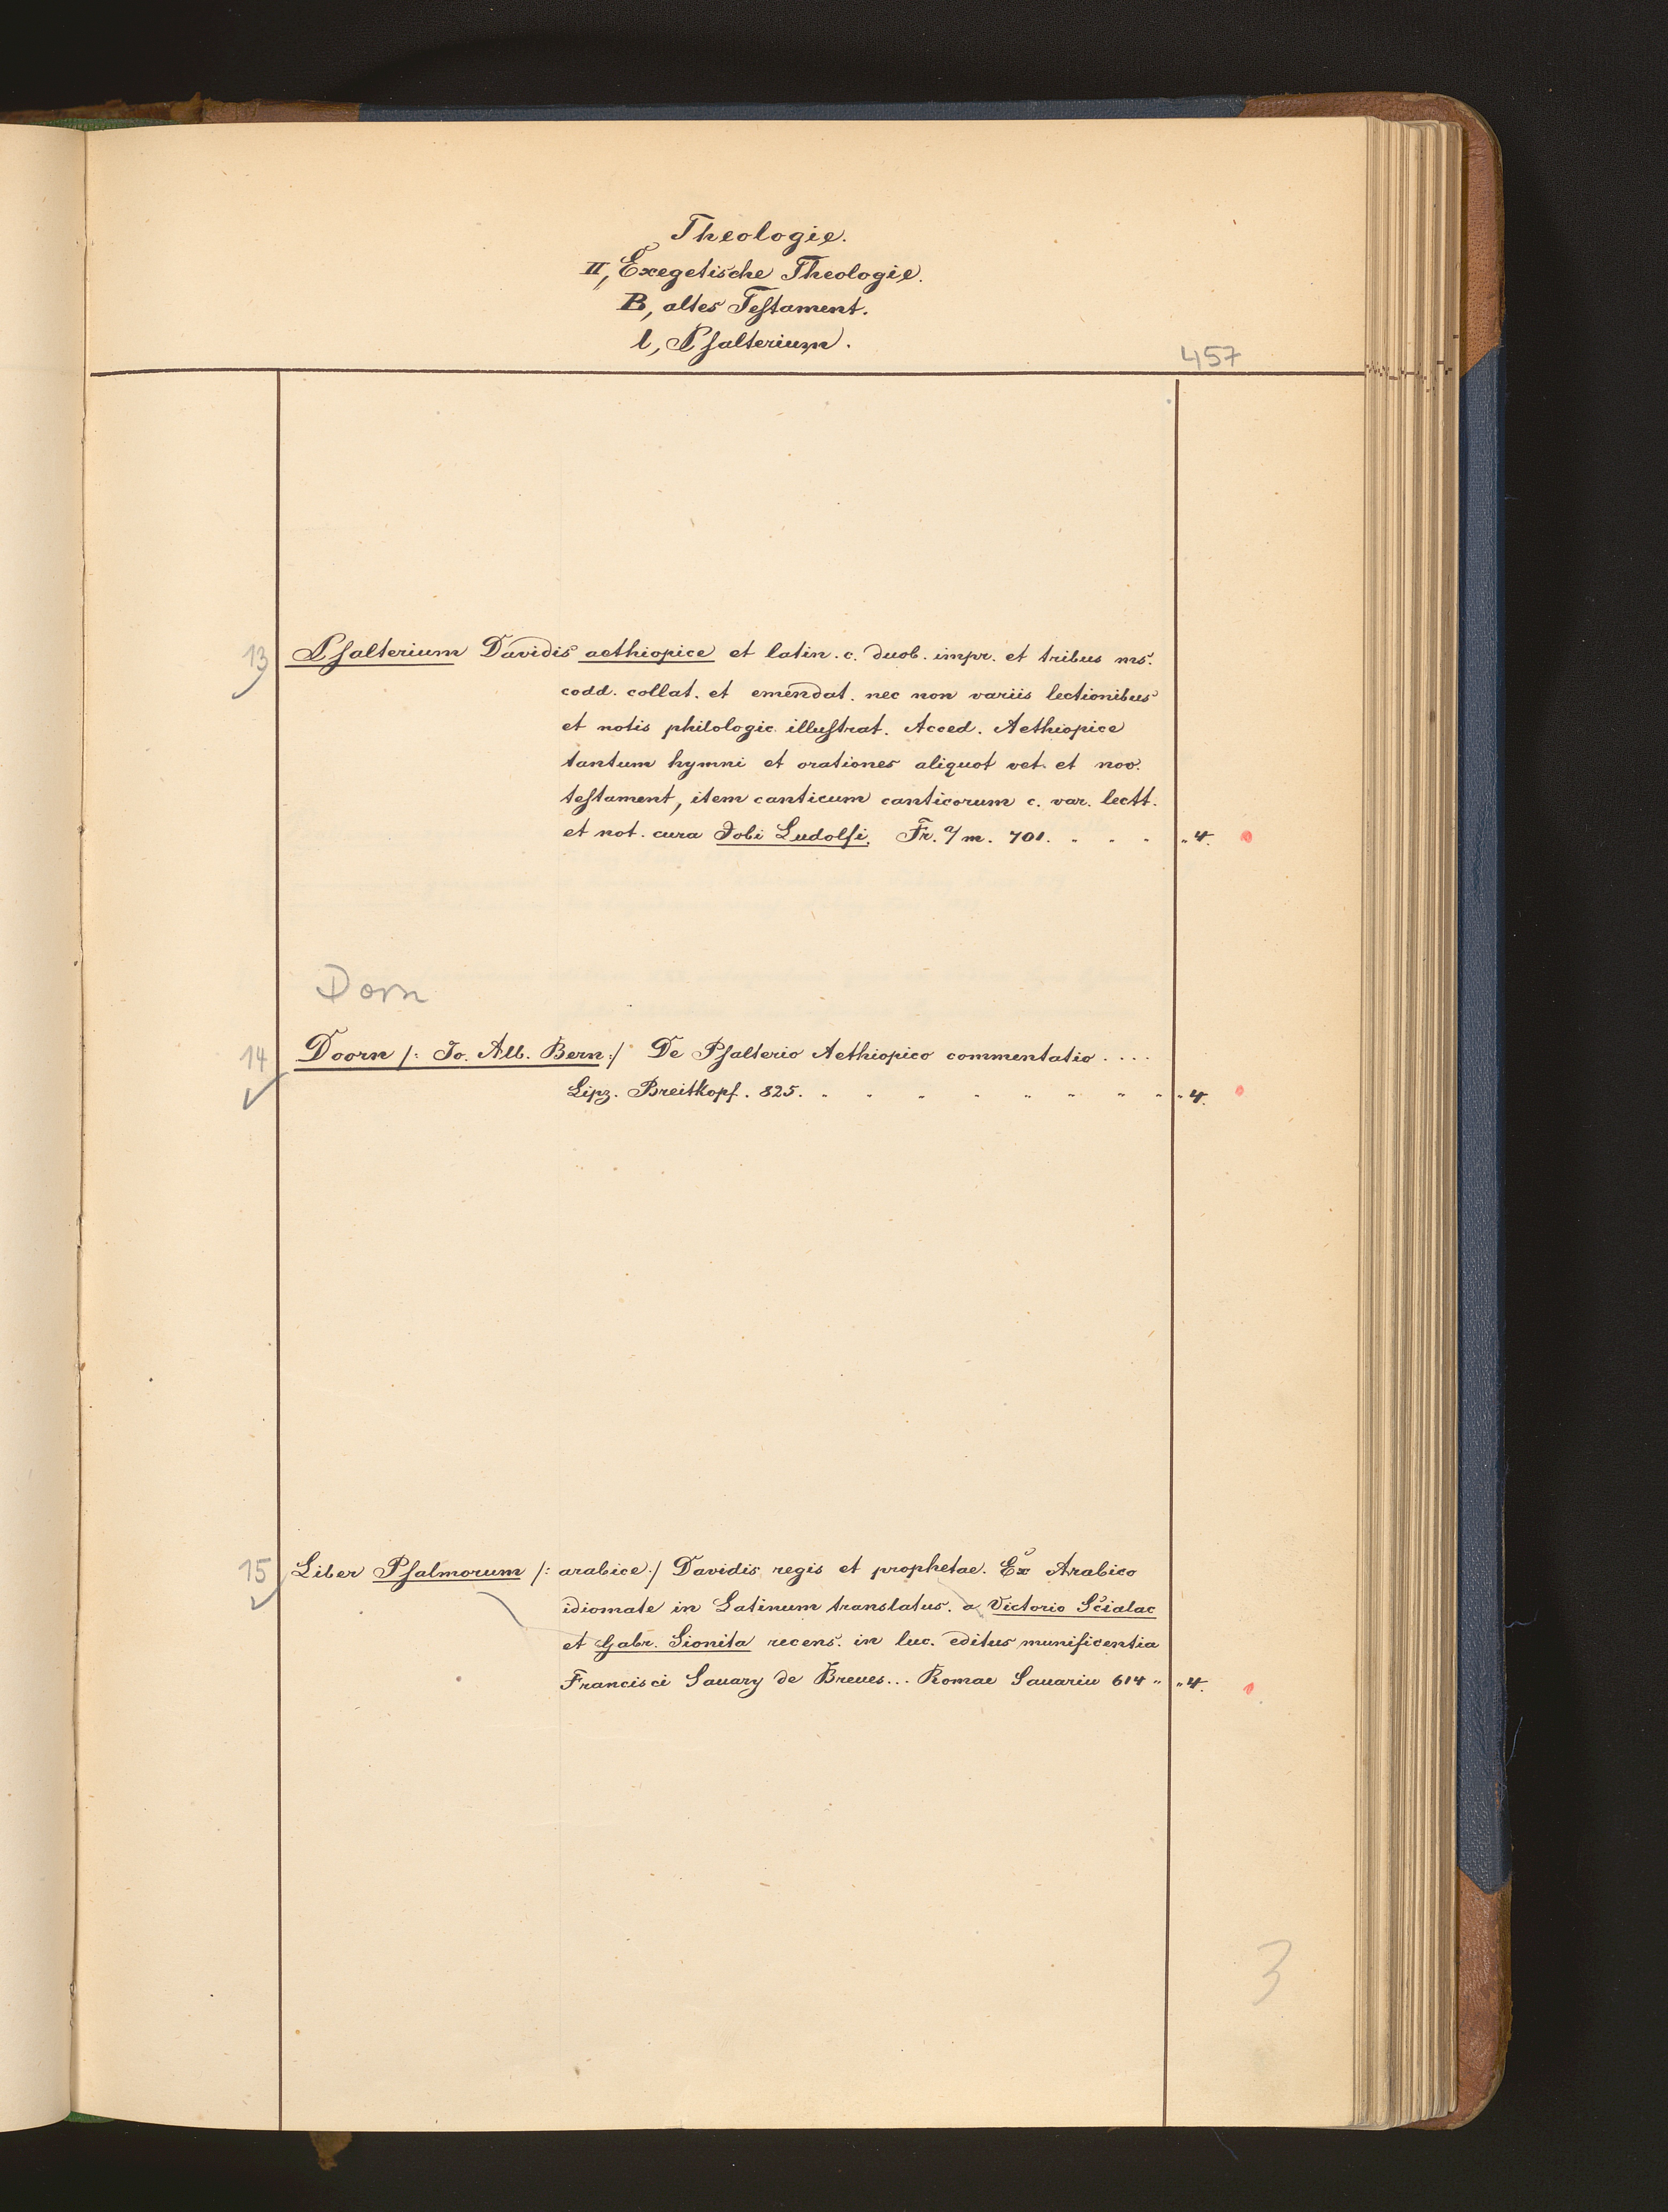 Theologie.
II, Exegetische Theologie.
B, altes Testament.
l, Psalterium.
457
13 Psalterium Davidis aethiopice et latin. c. duob. impr. et tribus ms.
codd. collat. et emendat. nec non variis lectionibus
et notis philologic. illustrat. Acced. Aethiopice
tantum hymni et orationes aliquot vet. et nov.
testament, item canticum canticorum c. var. lectt.
et not. cura Jobi Ludolfi. Fr. a/m. 701. " " " " 4.
Dorn
14 Doorn /: Jo. Alb. Bern :/ De Psalterio Aethiopico commentatio . . . .
Lipz. Breitkopf. 825. " " " " " " " " " 4.
15 Liber Psalmorum /: arabice :/ Davidis regis et prophetae. Ex Arabico
idiomate in Latinum translatus. a Victorio Scialac
et Gabr. Sionita recens. in luc. editus munificentia
Francisci Sauary de Breues... Romae Sauariu 614 " " 4.
3